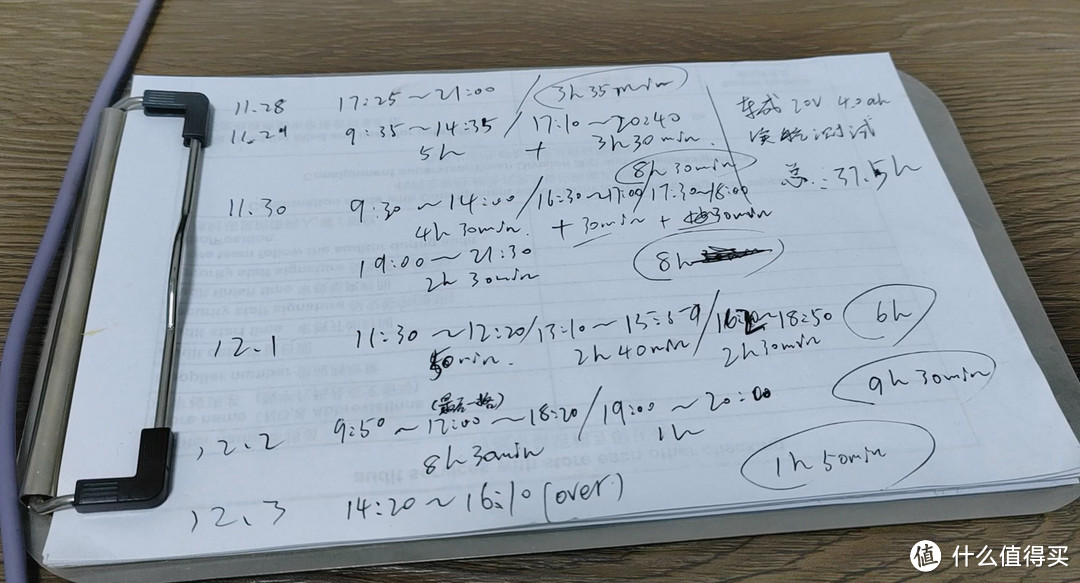 11.28 17:25~21:00 / 3h35min
11.29 9:35~14:35 / 17:10~20:40
5h + 3h30min.
8h30min
11.30 9:30~14:00/16:30~17:00/17:30~18:00
4h30min. + 30min + 30min
19:00~21:30
2h30min
8h
12.1 11:30~12:20/13:10~15:50/16:20~18:50 6h
50min. 2h40min 2h30min
12.2 9:50~12:00~18:20/19:00~20:00 9h30min
8h30min 1h
12.3 14:20~16:10 (over) 1h50min
20V 4.0ah
实验测试
总:37.5h
值 什么值得买